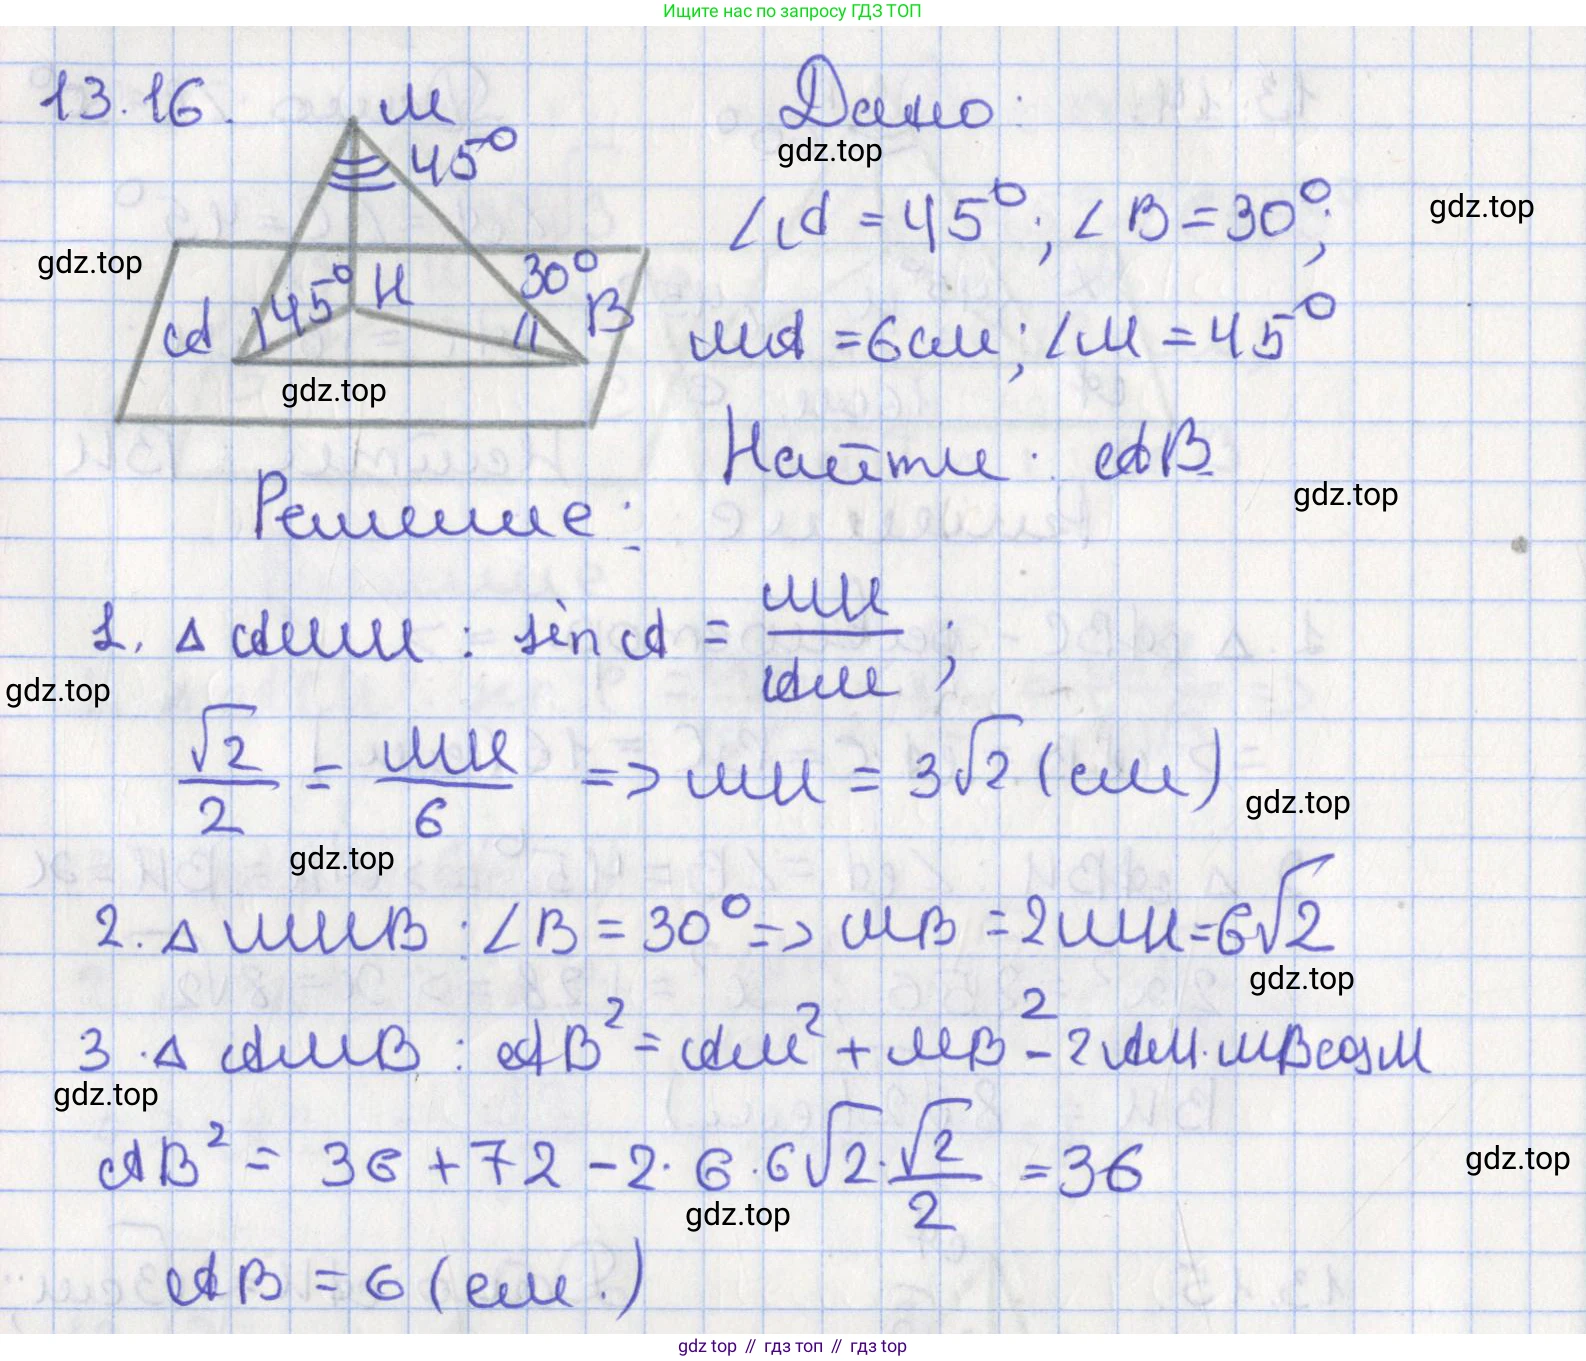 Ищите нас по запросу ГДЗ ТОП
13.16.
M
45°
Дано:
gdz.top
∠A = 45°; ∠B = 30°;
gdz.top
gdz.top
45° H
30°
A
B
MA = 6см; ∠M = 45°
gdz.top
Найти: AB
gdz.top
Решение:
1. △ AMH : sin A = MH/AM;
gdz.top
√2/2 = MH/6 => MH = 3√2 (см)
gdz.top
gdz.top
2. △ MHB : ∠B = 30° => MB = 2MH = 6√2
gdz.top
3. △ AMB : AB² = AM² + MB² - 2AM·MBcosM
gdz.top
AB² = 36 + 72 - 2·6·6√2·√2/2 = 36
gdz.top
gdz.top
AB = 6 (см.)
gdz top // гдз топ // гдз top